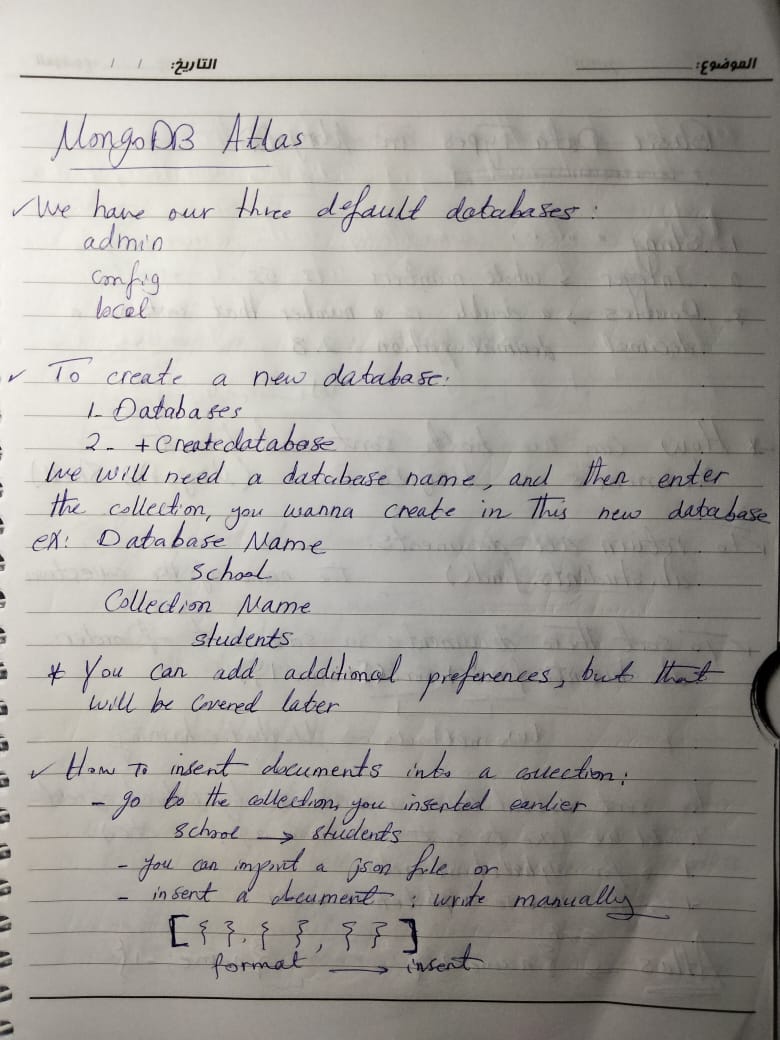 الموضوع: التاريخ: / /
MongoDB Atlas
✓ We have our three default databases:
admin
config
local
✓ To create a new database:
1- Databases
2- + Createdatabase
We will need a database name, and then enter
the collection, you wanna create in this new database
ex: Database Name
school
Collection Name
students
* You can add additional preferences, but that
will be covered later
✓ How To insert documents into a collection:
- go to the collection, you inserted earlier
school → students
- you can import a json file or
- insert a document : write manually
[{ }, { }, { }]
format → insert